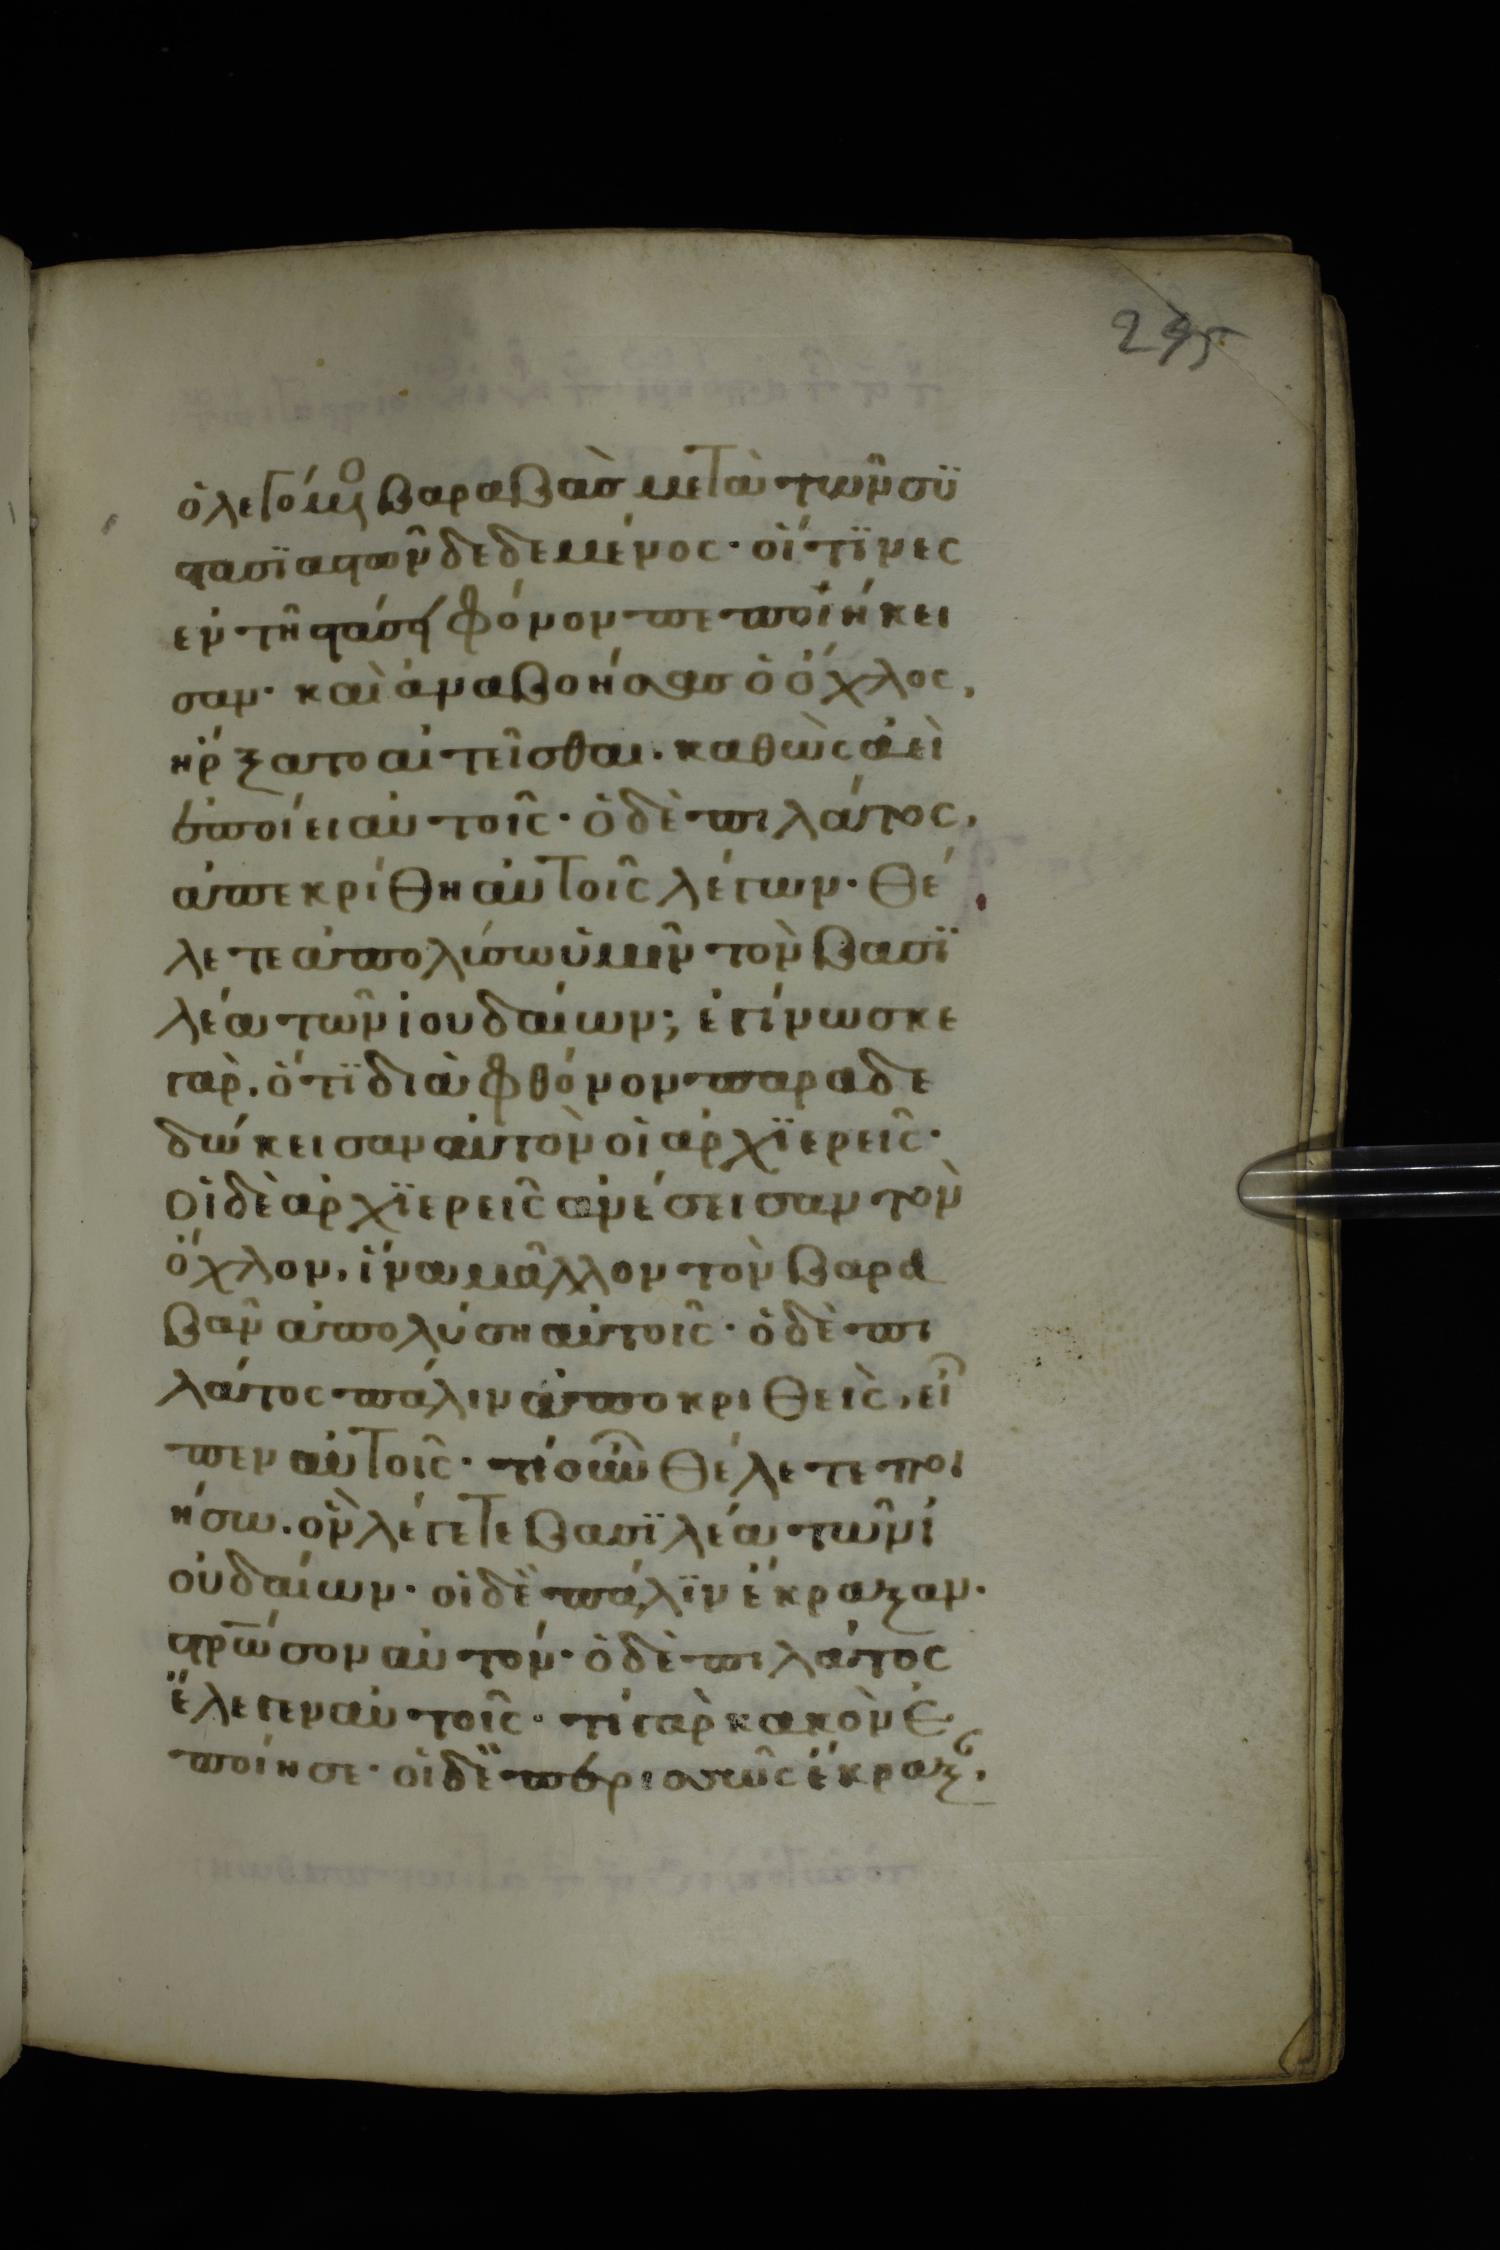 245
ὁ λεγόμενος βαραβὰσ μετὰ τῶν συ
στασϊαστῶν δεδεμένος· οἵτϊνες
ἐν τῆ στάσει φόνον πεποιήκει
σαν· καὶ ἀναβοήσασ ὁ ὄχλος,
ἤρξατο αἰτεῖσθαι. καθὼς ἀεὶ
ἐποίει αὐτοῖς· ὁ δὲ πιλάτος,
ἀπεκρίθη αὐτοῖς λέγων· θέ
λετε ἀπολύσω ὑμῖν τὸν βασϊ
λέα τῶν ἰουδαίων; ἐγίνωσκε
γὰρ. ὅτϊ διὰ φθόνον παραδε
δώκεισαν αὐτὸν οἱ ἀρχϊερεῖς·
οἱ δὲ ἀρχϊερεῖς ἀνέσεισαν τὸν
ὄχλον, ἵνα μᾶλλον τὸν βαρα
βᾶν ἀπολύση αὐτοῖς· ὁ δὲ πι
λάτος πάλιν ἀποκριθεὶς, εἶ
πεν αὐτοῖς· τί οὖν θέλετε ποι
ήσω. ὃν λέγετε βασϊλέα τῶν ἰ
ουδαίων· οἱ δὲ πάλϊν ἔκραξαν·
στρώσον αὐτόν· ὁ δὲ πιλάτος
ἔλεγεν αὐτοῖς· τί γὰρ κακὸν ἐ
ποίησε· οἱ δὲ περισσῶς ἔκραξ.